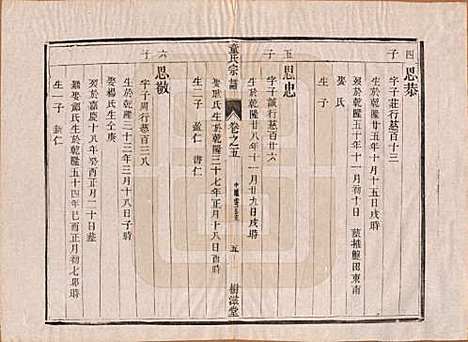 四子
思恭
字子莊行慈百十三
生於乾隆廿五年十月十五日戌時
歿於乾隆五十年十一月初十日 墓橫龍田東南
娶氏
五子
思忠
字子誠行慈百廿六
生於乾隆廿八年十一月廿九日戌時
童氏宗譜
卷之五
五
樹滋堂
生於乾隆三十七年正月十八日酉時
生二子 盈仁 壽仁
六子
思敬
字子周行慈百三八
生於乾隆三十三年三月十八日子時
歿於嘉慶十八年癸酉正月二十日
娶楊氏生年庚
生於乾隆五十四年己酉正月初七卯時
生一子 仁